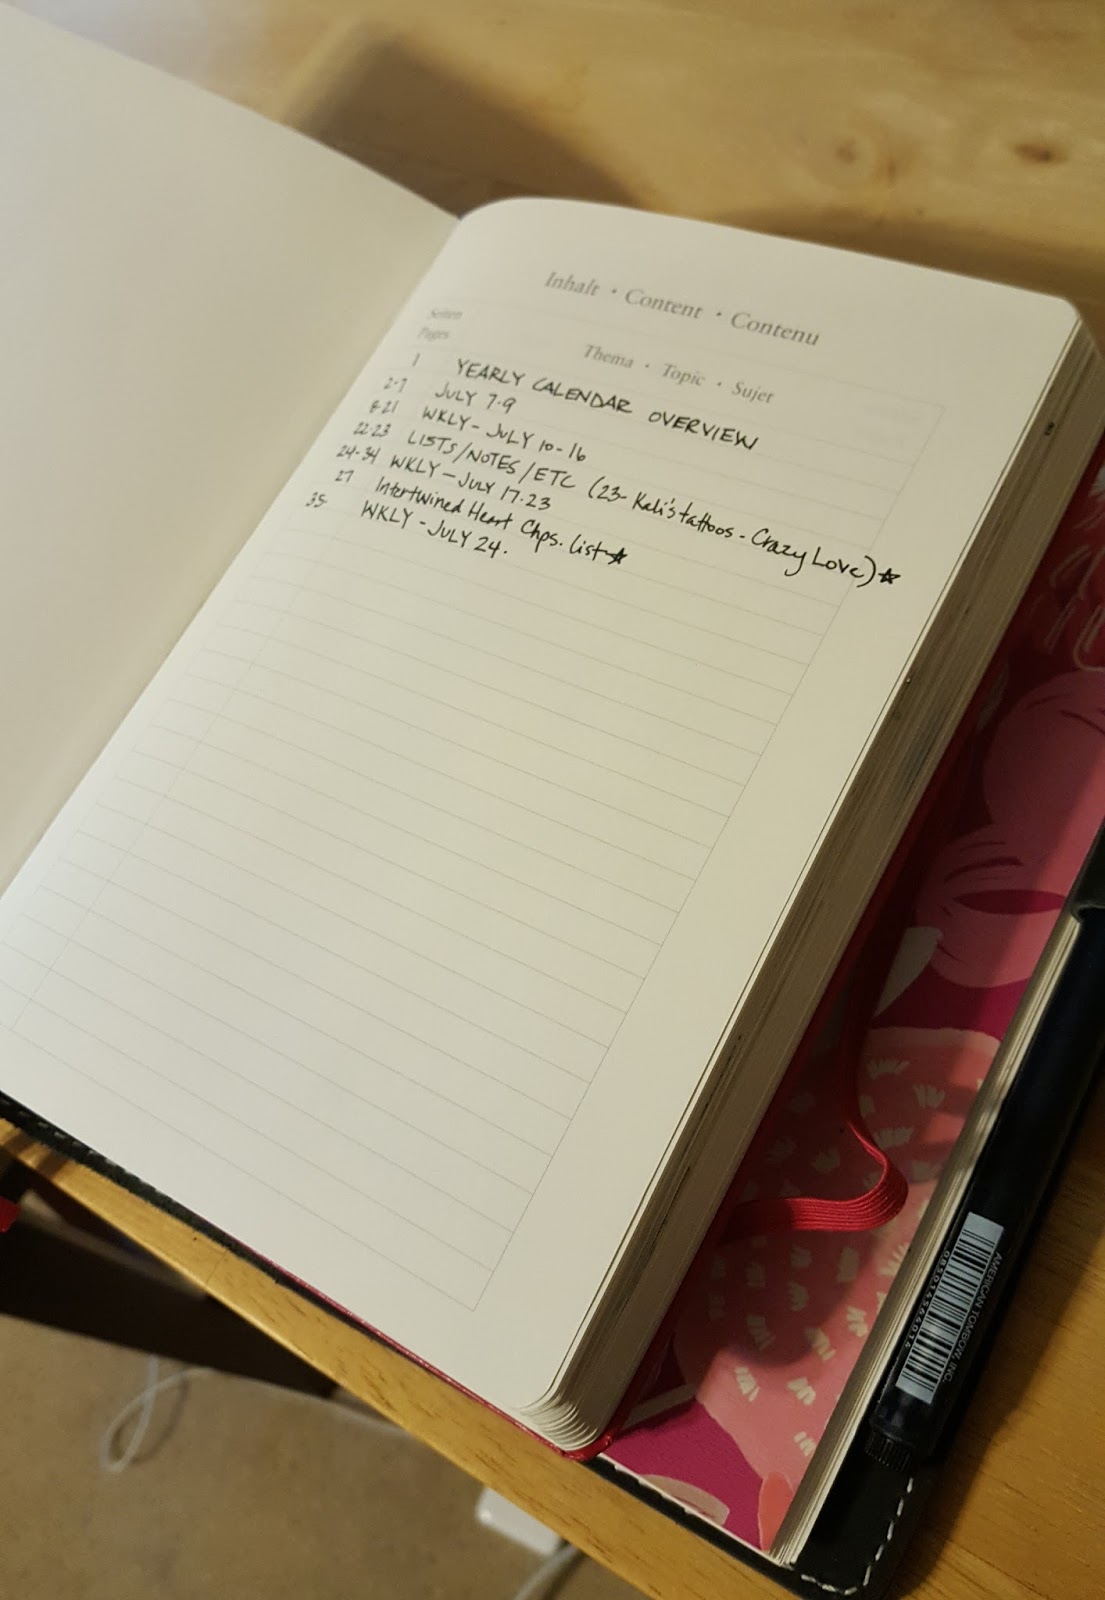 Inhalt · Content · Contenu
Seiten
Pages
Thema · Topic · Sujet
1 YEARLY CALENDAR OVERVIEW
2-7 JULY 7-9
8-21 WKLY - JULY 10-16
22-23 LISTS/NOTES/ETC (23- Kali's tattoos - Crazy Love)☆
24-34 WKLY - JULY 17-23
27 Intertwined Heart Chps. list ☆
35- WKLY - JULY 24.
AMERICAN TOMBOW, INC.